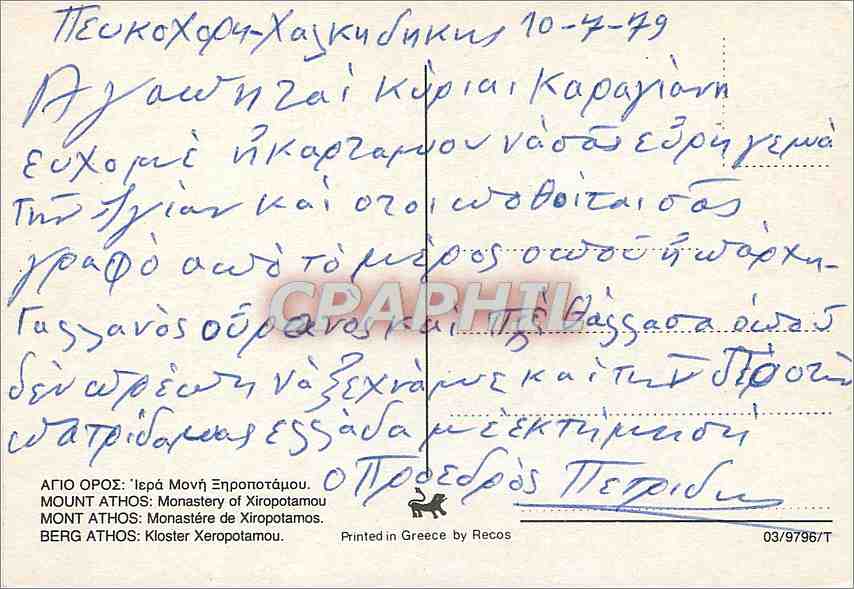 Πευκοχορη-Χαλκηδηκης 10-7-79
Αγαπηταί Κύριαι Καραγιάνη
ευχομὲ ἡ καρταμου νὰ σᾶς εὕρη γεμά
την ὑγίαν καὶ οτοι ποθοῖται σᾶς
γραφὸ απὸ τὸ μέρος οποῦ ἠπάρχη-
Γαλλανὸς οὐρανος καὶ θάλλασα ὁποῦ
δὲν πρέπη νὰ ξεχνάμε καὶ την
πατρίδαμας ελλάδα μὲ ἐκτήμησή
ο Προεδρὸς Πετριδης
ΑΓΙΟ ΟΡΟΣ: Ἱερά Μονή Ξηροποτάμου.
MOUNT ATHOS: Monastery of Xiropotamou
MONT ATHOS: Monastére de Xiropotamos.
BERG ATHOS: Kloster Xeropotamou.
Printed in Greece by Recos
03/9796/T
CPAPHIL